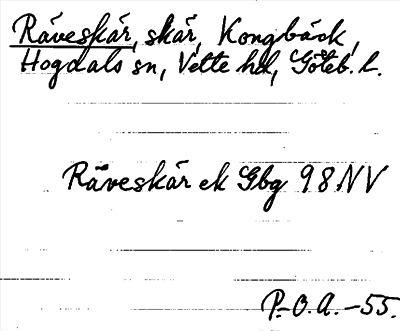 Räveskär, skär, Kongbäck,
Hogdals sn, Vette hd, Göteb. l.
Räveskär ek Gbg 98 NV
P.-O.A. -55.